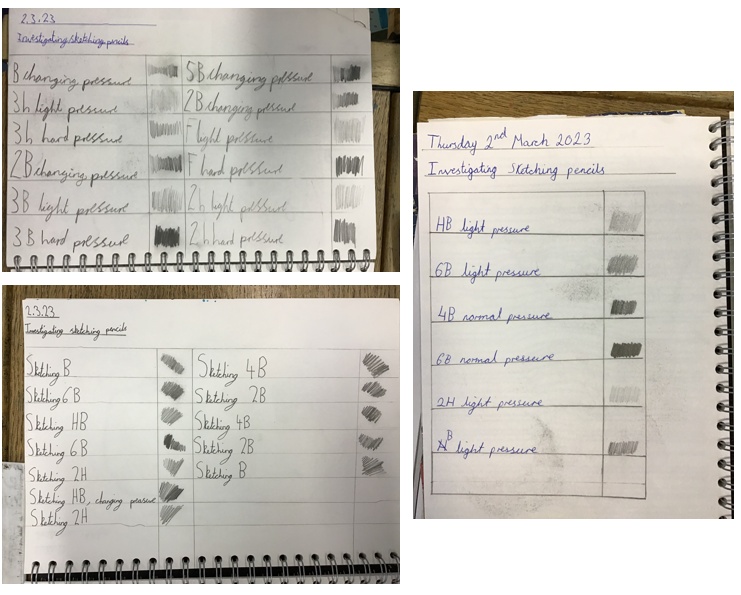 2.3.23
Investigating sketching pencils
B changing pressure
5B changing pressure
3h light pressure
2B changing pressure
3h hard pressure
F light pressure
2B changing pressure
F hard pressure
3B light pressure
2h light pressure
3B hard pressure
2h hard pressure
2.3.23
Investigating sketching pencils
Sketching B
Sketching 4B
Sketching 6B
Sketching 2B
Sketching HB
Sketching 4B
Sketching 6B
Sketching 2B
Sketching 2H
Sketching B
Sketching HB, changing pressure
Sketching 2H
Thursday 2nd March 2023
Investigating Sketching pencils
HB light pressure
6B light pressure
4B normal pressure
6B normal pressure
2H light pressure
B light pressure